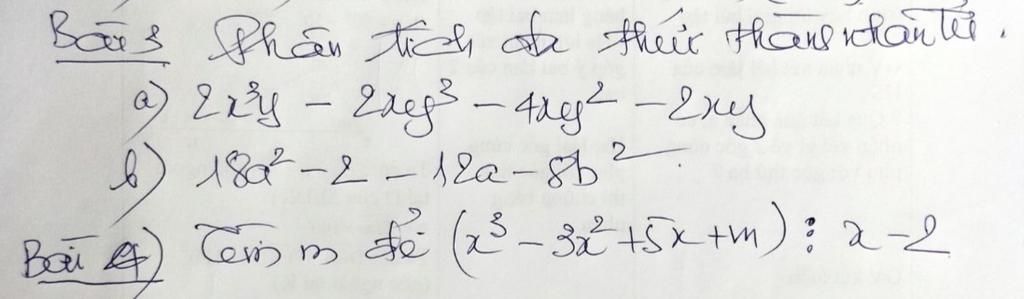 Bài 3 Phân tích đa thức thành nhân tử.
a) 2x³y - 2xy³ - 4xy² - 2xy
b) 18a² - 2 - 12a - 8b².
Bài 4) Tìm m để (x³ - 3x² + 5x + m) ⋮ x - 2